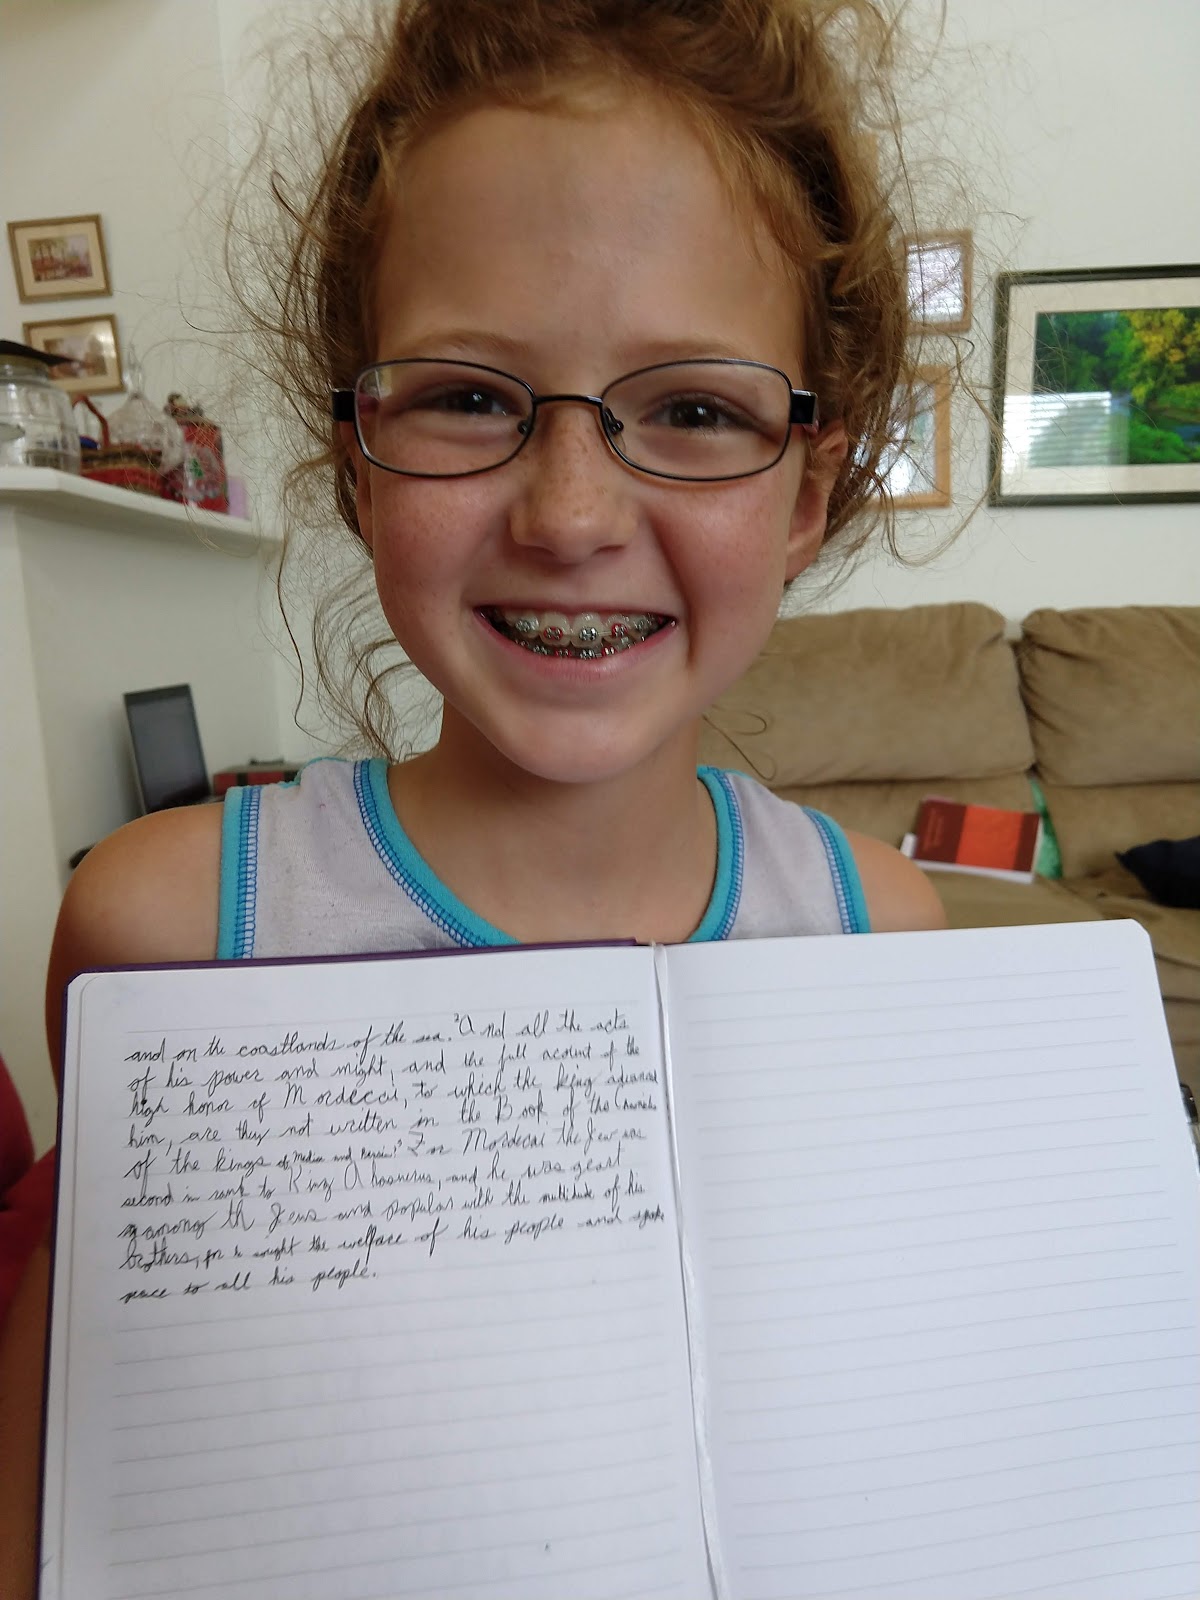 and on the coastlands of the sea. ²And all the acts
of his power and might, and the full acount of the
high honor of Mordecai, to which the king advanced
him, are they not written in the Book of the
of the kings of Media and Persia? ³For Mordecai the Jew was
second in rank to King Ahasuerus, and he was geart
among th Jews and popular with the multitude of his
brothers, for he sought the welface of his people and spoke
peace to all his people.